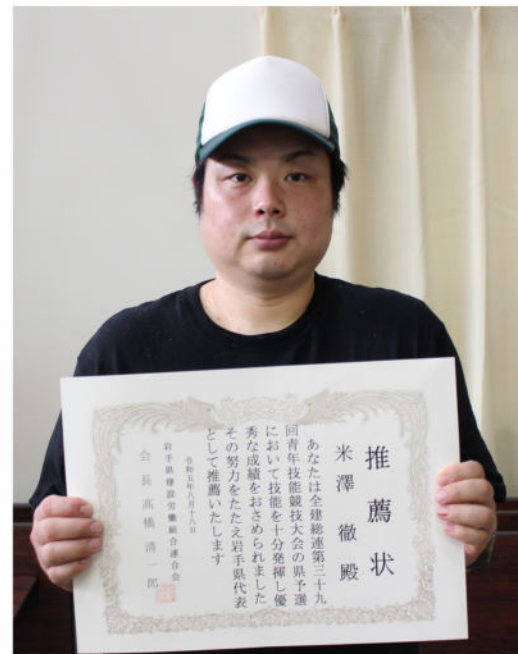 推薦状
米澤徹殿
あなたは全建総連第三十九
回青年技能競技大会の県予選
において技能を十分発揮し優
秀な成績をおさめられました
その努力をたたえ岩手県代表
として推薦いたします
令和五年八月十八日
岩手県建設労働組合連合会
会長高橋清一郎